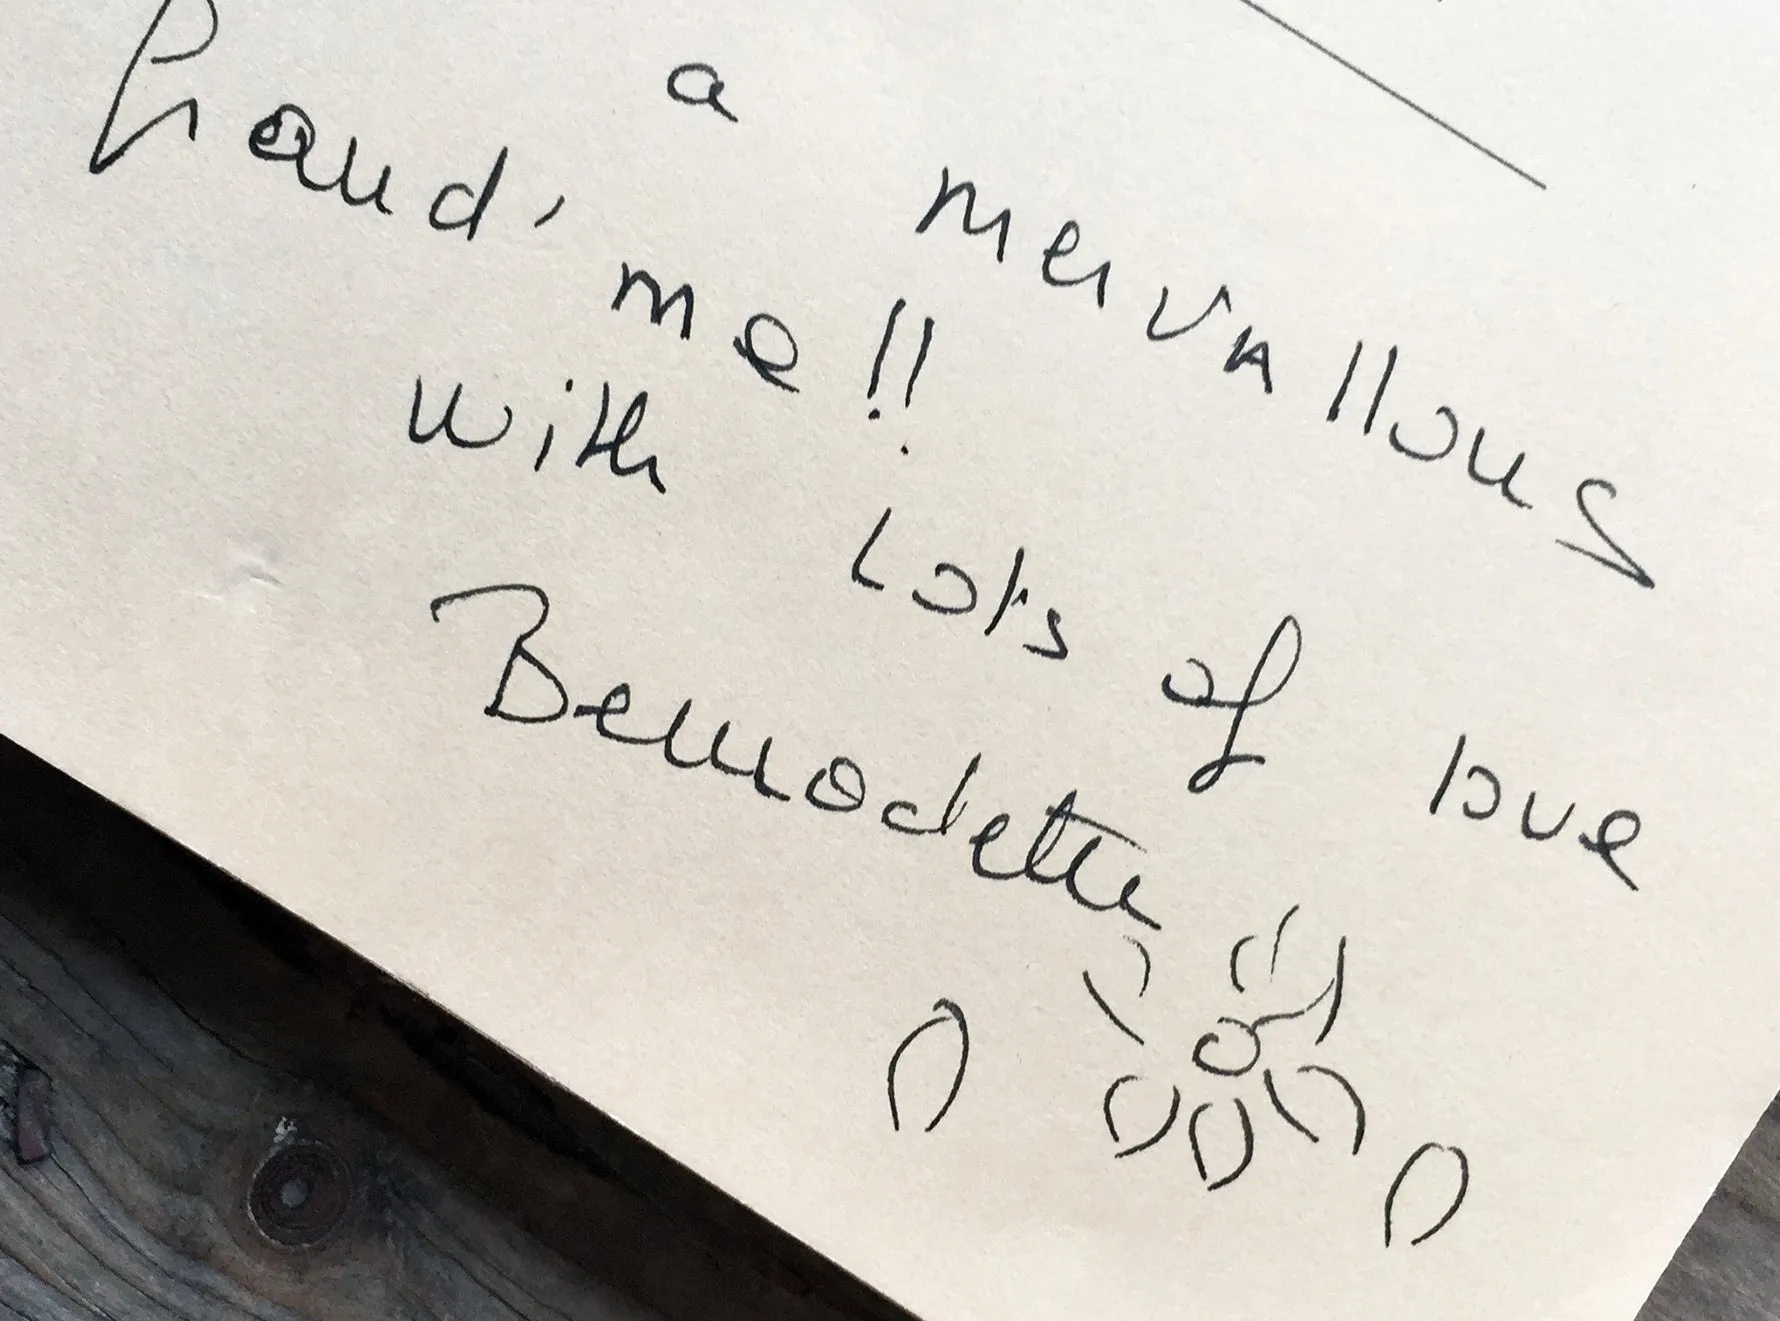 a mervallous
Grand'me!!
with Lots of love
Bernadette